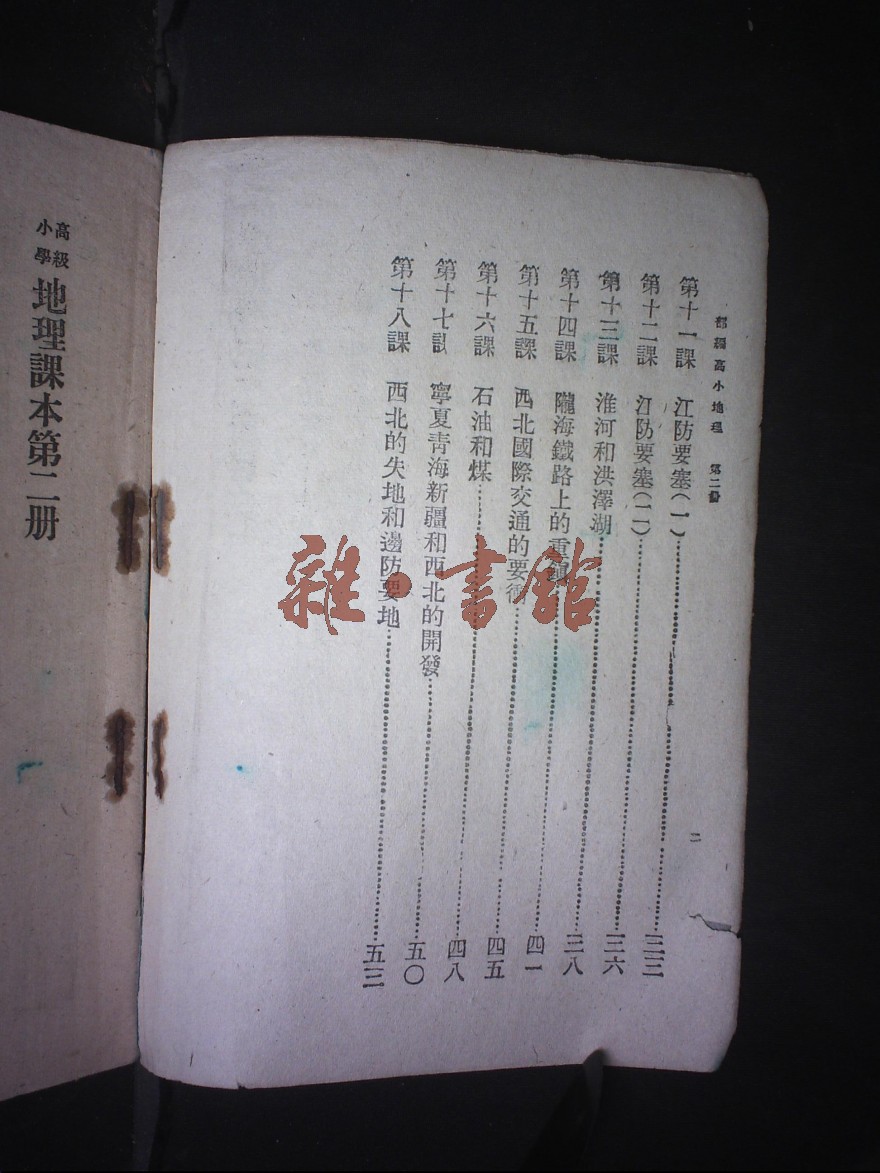 部編高小地理　第二册
二
第十一課　江防要塞(一)……三三
第十二課　江防要塞(二)……三六
第十三課　淮河和洪澤湖……三八
第十四課　隴海鐵路上的重鎮……四一
第十五課　西北國際交通的要衝……四五
第十六課　石油和煤……四八
第十七課　寧夏靑海新疆和西北的開發……五〇
第十八課　西北的失地和邊防要地……五三
高級小學地理課本第二册
雜·書館